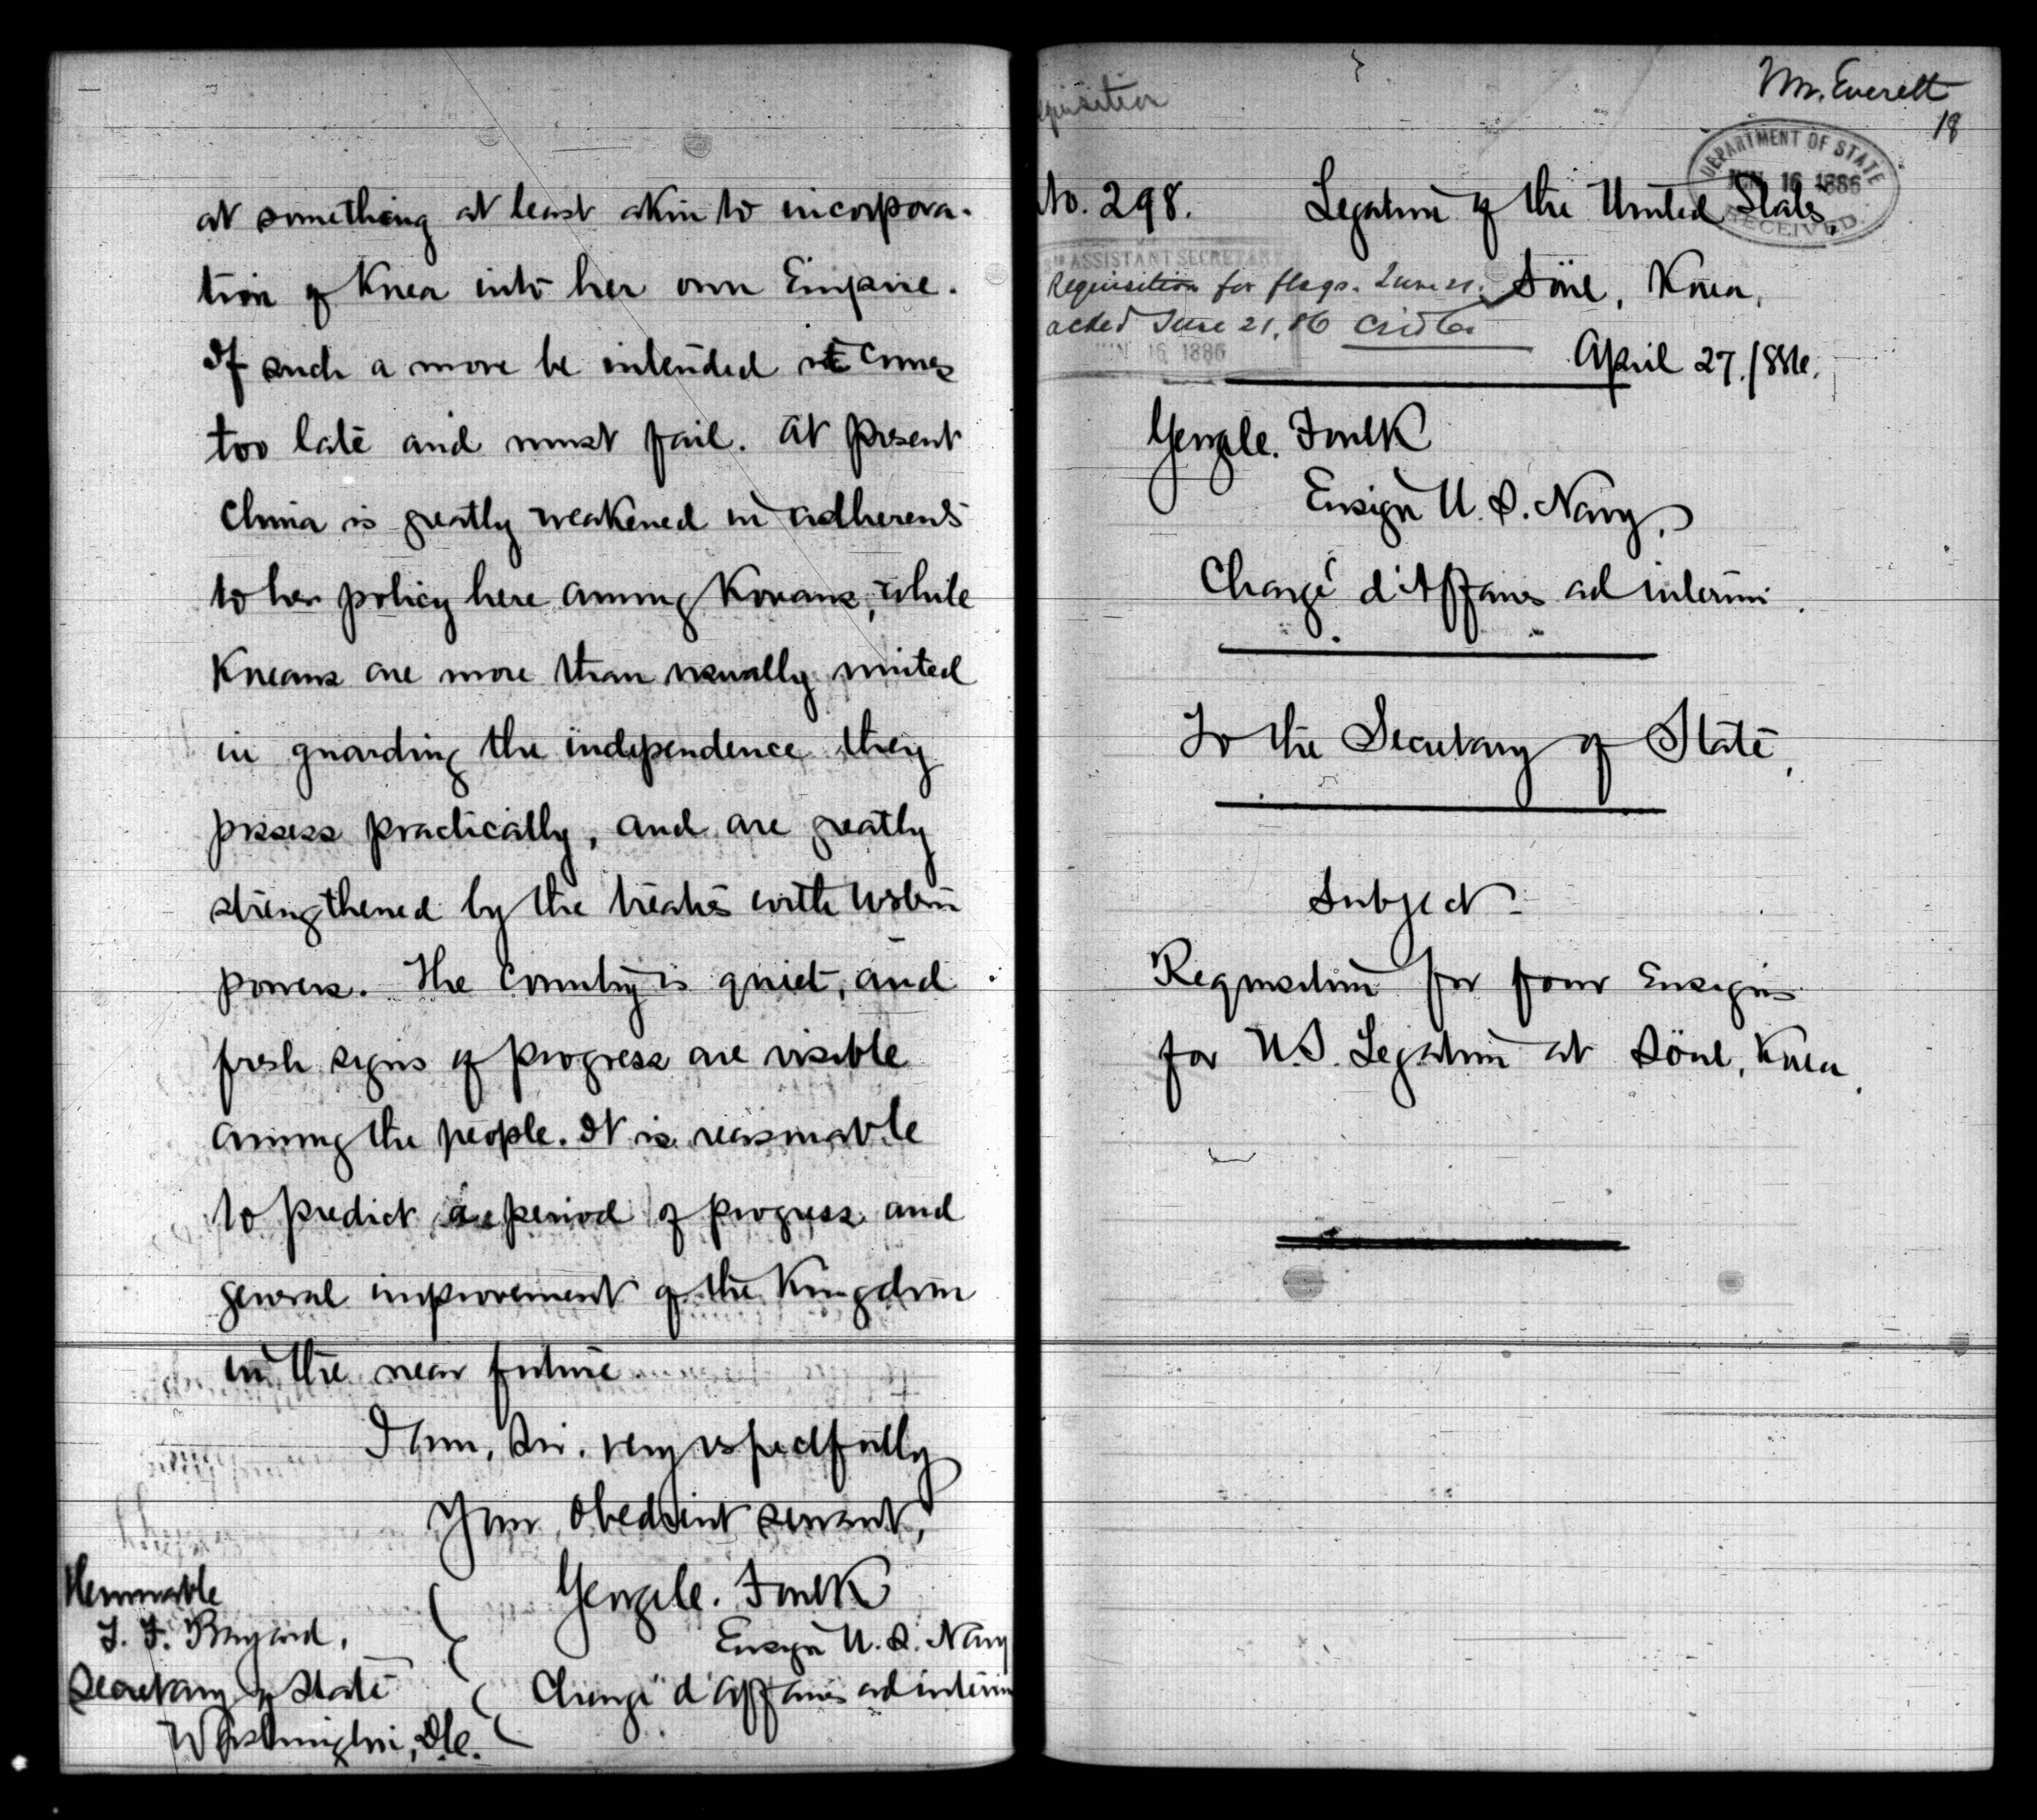 at something at least akin to incorpora-
tion of Korea into her own Empire.
If such a move be intended it comes
too late and must fail. At present
China is greatly weakened in adherents
to her policy here among Koreans, while
Koreans are more than usually united
in guarding the independence they
possess practically, and are greatly
strengthened by the treaties with Western
powers. The Country is quiet, and
fresh signs of progress are visible
among the people. It is reasonable
to predict a period of progress and
general improvement of the Kingdom
in the near future
I am, Sir, very respectfully
Your obedient servant,
George C. Foulk
Ensign U. S. Navy
Chargé d'Affaires ad interim
Honorable
T. F. Bayard,
Secretary of State
Washington, D.C.
Mr. Everett
18
DEPARTMENT OF STATE
JUN 16 1886
RECEIVED
No. 298.
Legation of the United States,
Söul, Korea,
April 27. 1886.
ASSISTANT SECRETARY
Requisition for flags. June 21.
acked June 21, 86
JUN 16 1886
George C. Foulk
Ensign U. S. Navy,
Chargé d'Affaires ad interim.
To the Secretary of State,
Subject:
Requisition for four Ensigns
for U.S. Legation at Söul, Korea.